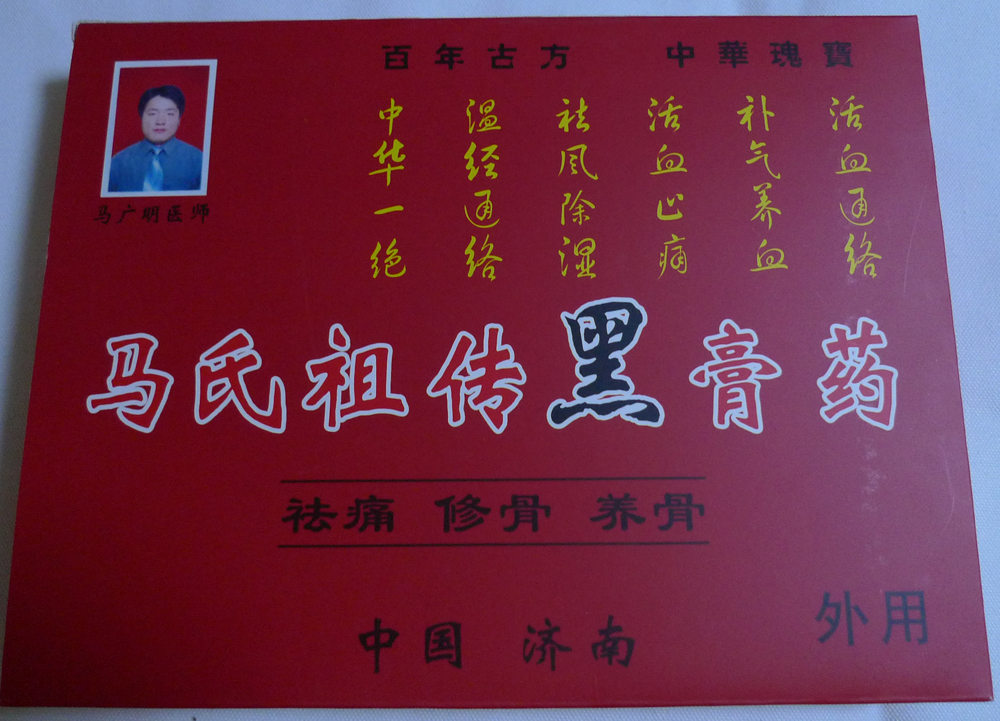 百年古方 中華瑰寶
马广明医师
活血通络
补气养血
活血止痛
祛风除湿
温经通络
中华一绝
马氏祖传黑膏药
祛痛 修骨 养骨
外用
中国 济南